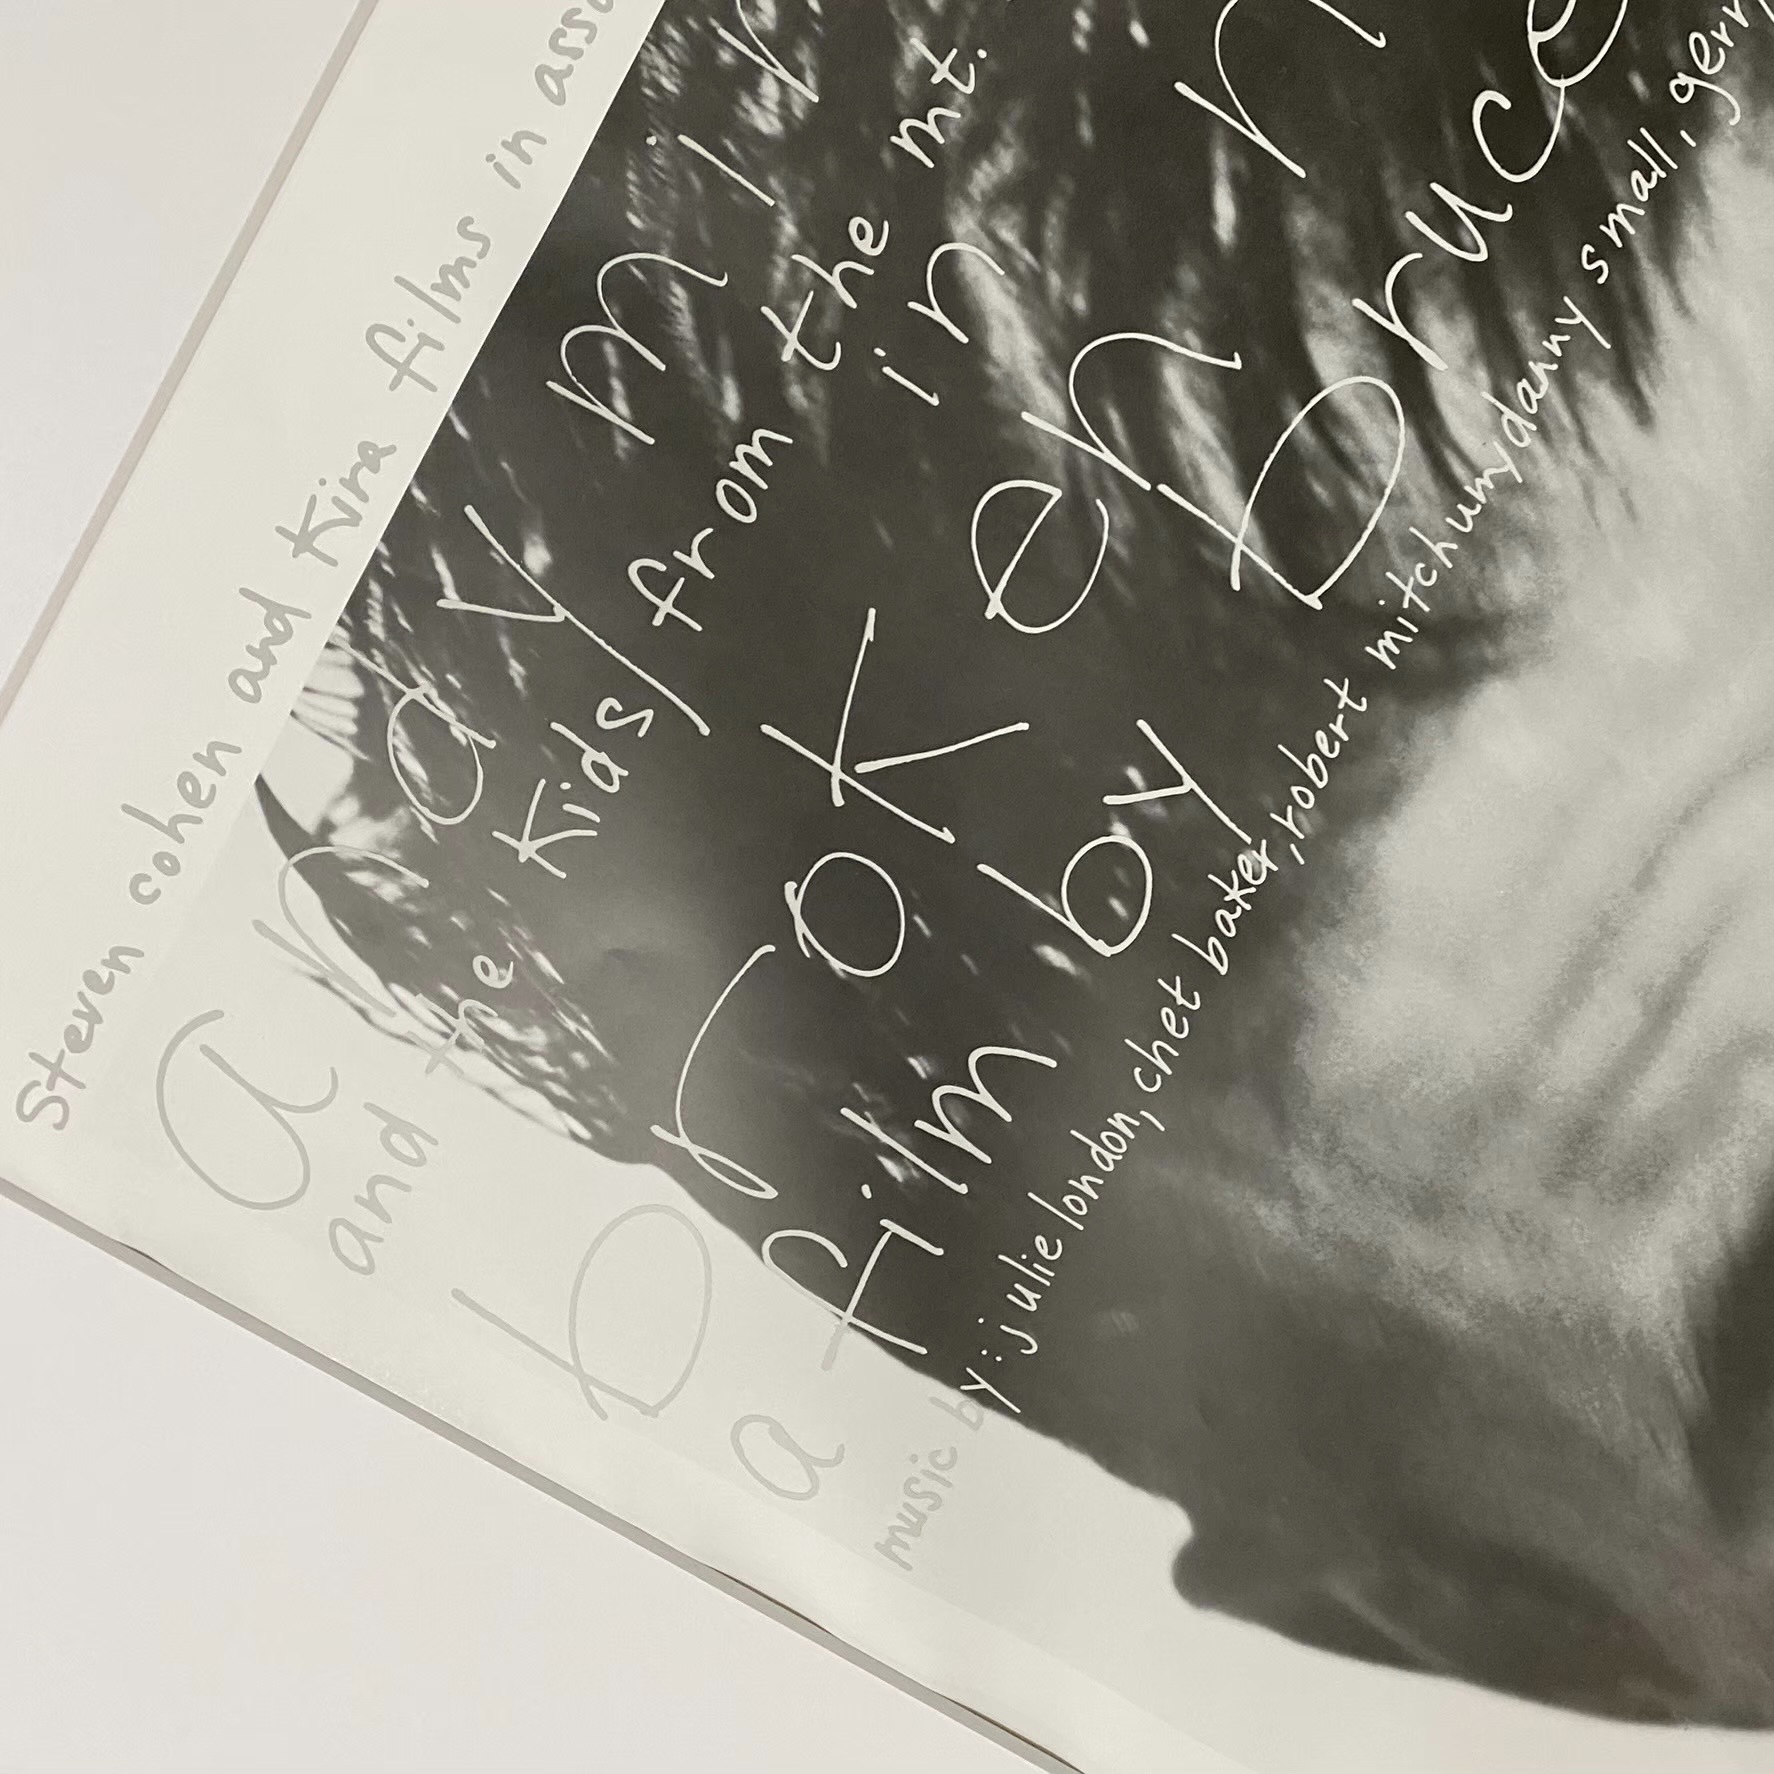 Steven cohen and Kira films in asso
andy min
and the Kids/from the mt.
broken in
a film by bruce
music by: julie london, chet baker, robert mitchum, danny small, gerry